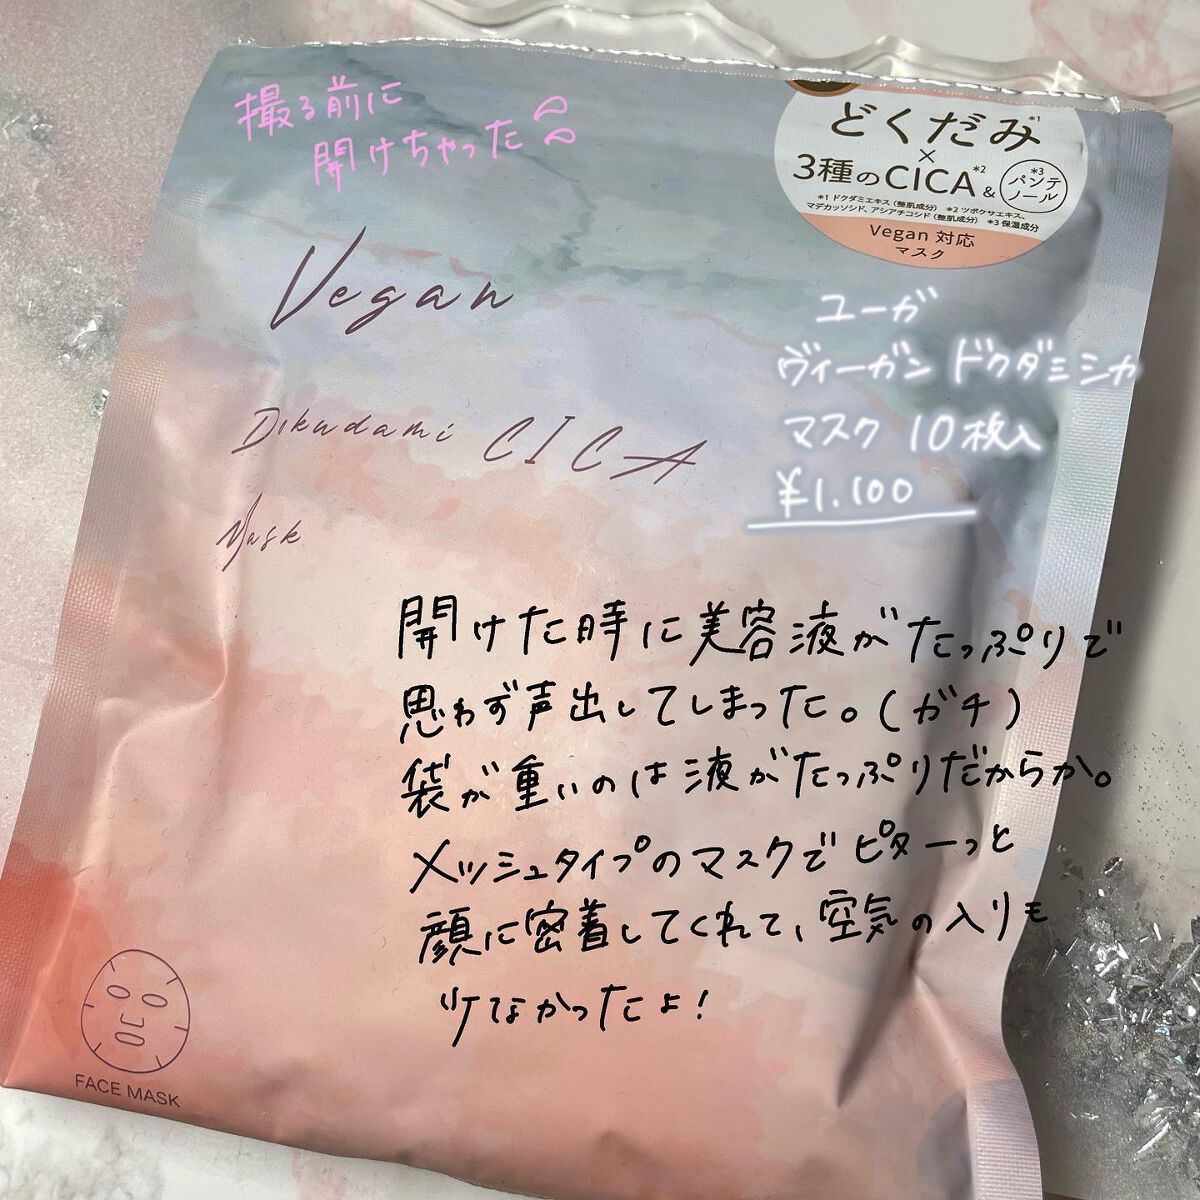 撮る前に
開けちゃった
どくだみ*1
×
3種のCICA*2 & パンテノール*3
*1 ドクダミエキス(整肌成分) *2 ツボクサエキス、
マデカッソシド、アシアチコシド(整肌成分) *3 保湿成分
Vegan 対応
マスク
Vegan
Dokudami CICA
Mask
ユーガ
ヴィーガン ドクダミシカ
マスク 10枚入
¥1.100
開けた時に美容液がたっぷりで
思わず声出してしまった。(ガチ)
袋が重いのは液がたっぷりだからか。
メッシュタイプのマスクでピターっと
顔に密着してくれて、空気の入りも
少なかったよ!
FACE MASK